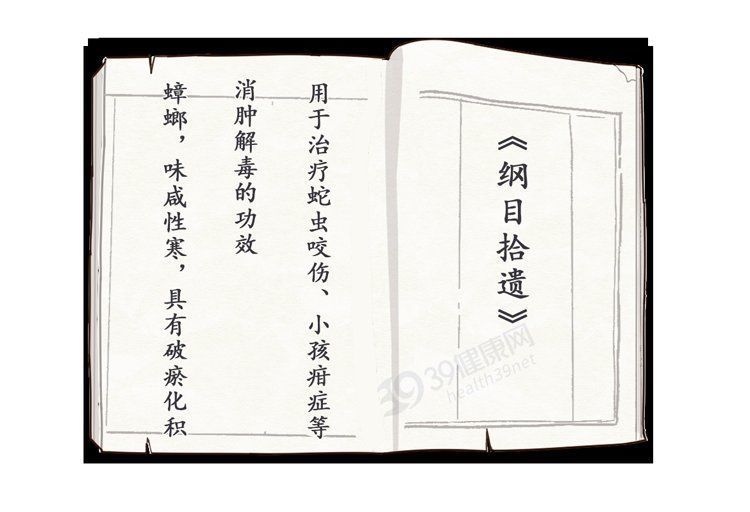 《纲目拾遗》
蟑螂，味咸性寒，具有破瘀化积
消肿解毒的功效
用于治疗蛇虫咬伤、小孩疳症等
39健康网
health39net